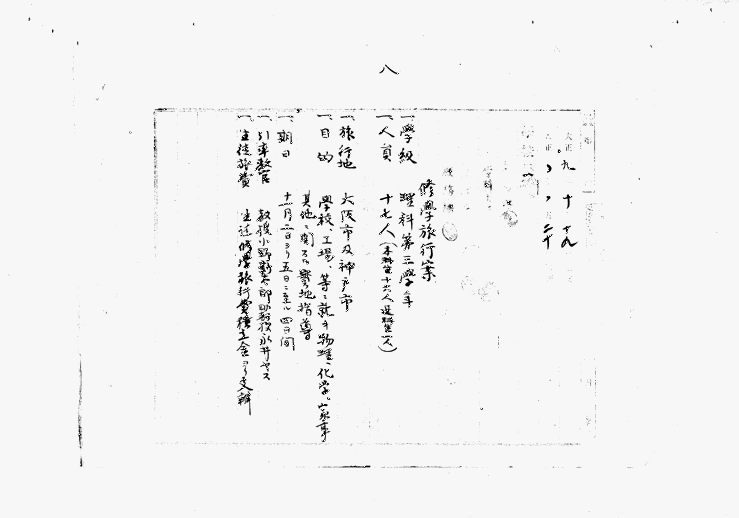 八
大正九 十 十九
大正 〃 〃 二十
修学旅行案
一、学級 理科第三学年
一、人員 十七人(本科生十六人選科生一人)
一、旅行地 大阪市及神戸市
一、目的 学校、工場、等ニ就キ物理、化学、家事
其他ニ関スル実地指導
一、期日 十一月二日ヨリ五日ニ至ル四日間
一、引率教官 教授小野 太郎助教授永井ヤス
一、生徒旅費 生徒修学旅行費積立金ヨリ支辨